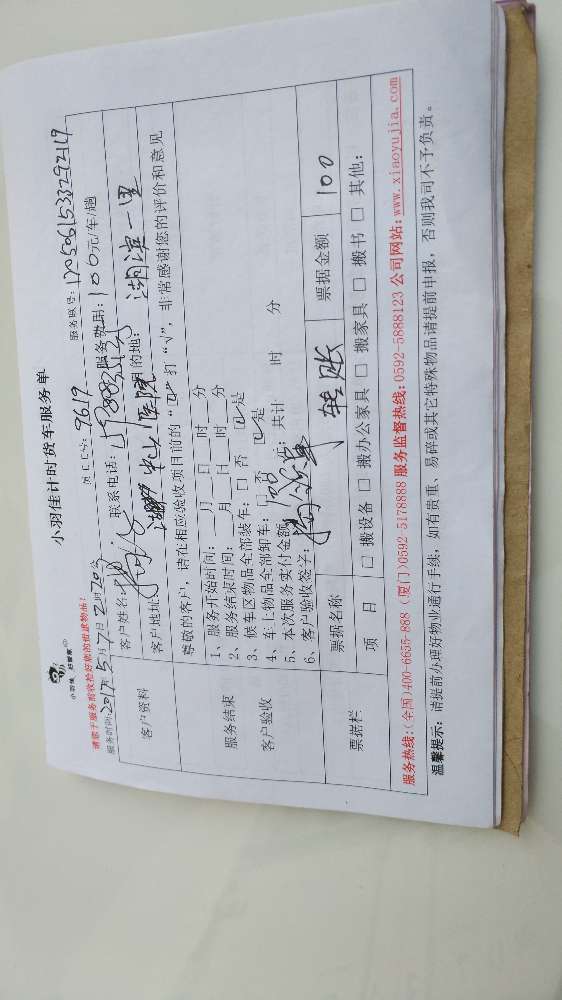 小羽佳计时货车服务单
小羽佳 好管家
服务账号:
请您于服务前收检好您的贵重物品!
服务时间: 2017年5月7日
9619
客户资料
客户姓名:
联系电话:
服务费用: 100元/车/趟
客户地址:
中山医院
目的地: 湖滨一里
尊敬的客户, 请在相应验收项目前的“□”打“√”, 非常感谢您的评价和意见
服务结束
客户验收
1、服务开始时间: 月 日 时 分
2、服务结束时间: 月 日 时 分
3、候车区物品全部装车: □ 否 ☑ 是
4、车上物品全部卸车: □ 否 ☑ 是
5、本次服务实付金额: 元; 共计 时 分
6、客户验收签字:
票据栏
票据名称
转账
票据金额
100
项 目
□ 搬设备 □ 搬办公家具 □ 搬家具 □ 搬书 □ 其他:
服务热线: (全国)400-6655-888 (厦门)0592-5178888 服务监督热线: 0592-5888123 公司网站: www.xiaoyujia.com
温馨提示: 请提前办理好物业通行手续, 如有贵重、易碎或其它特殊物品请提前申报, 否则我司不予负责。